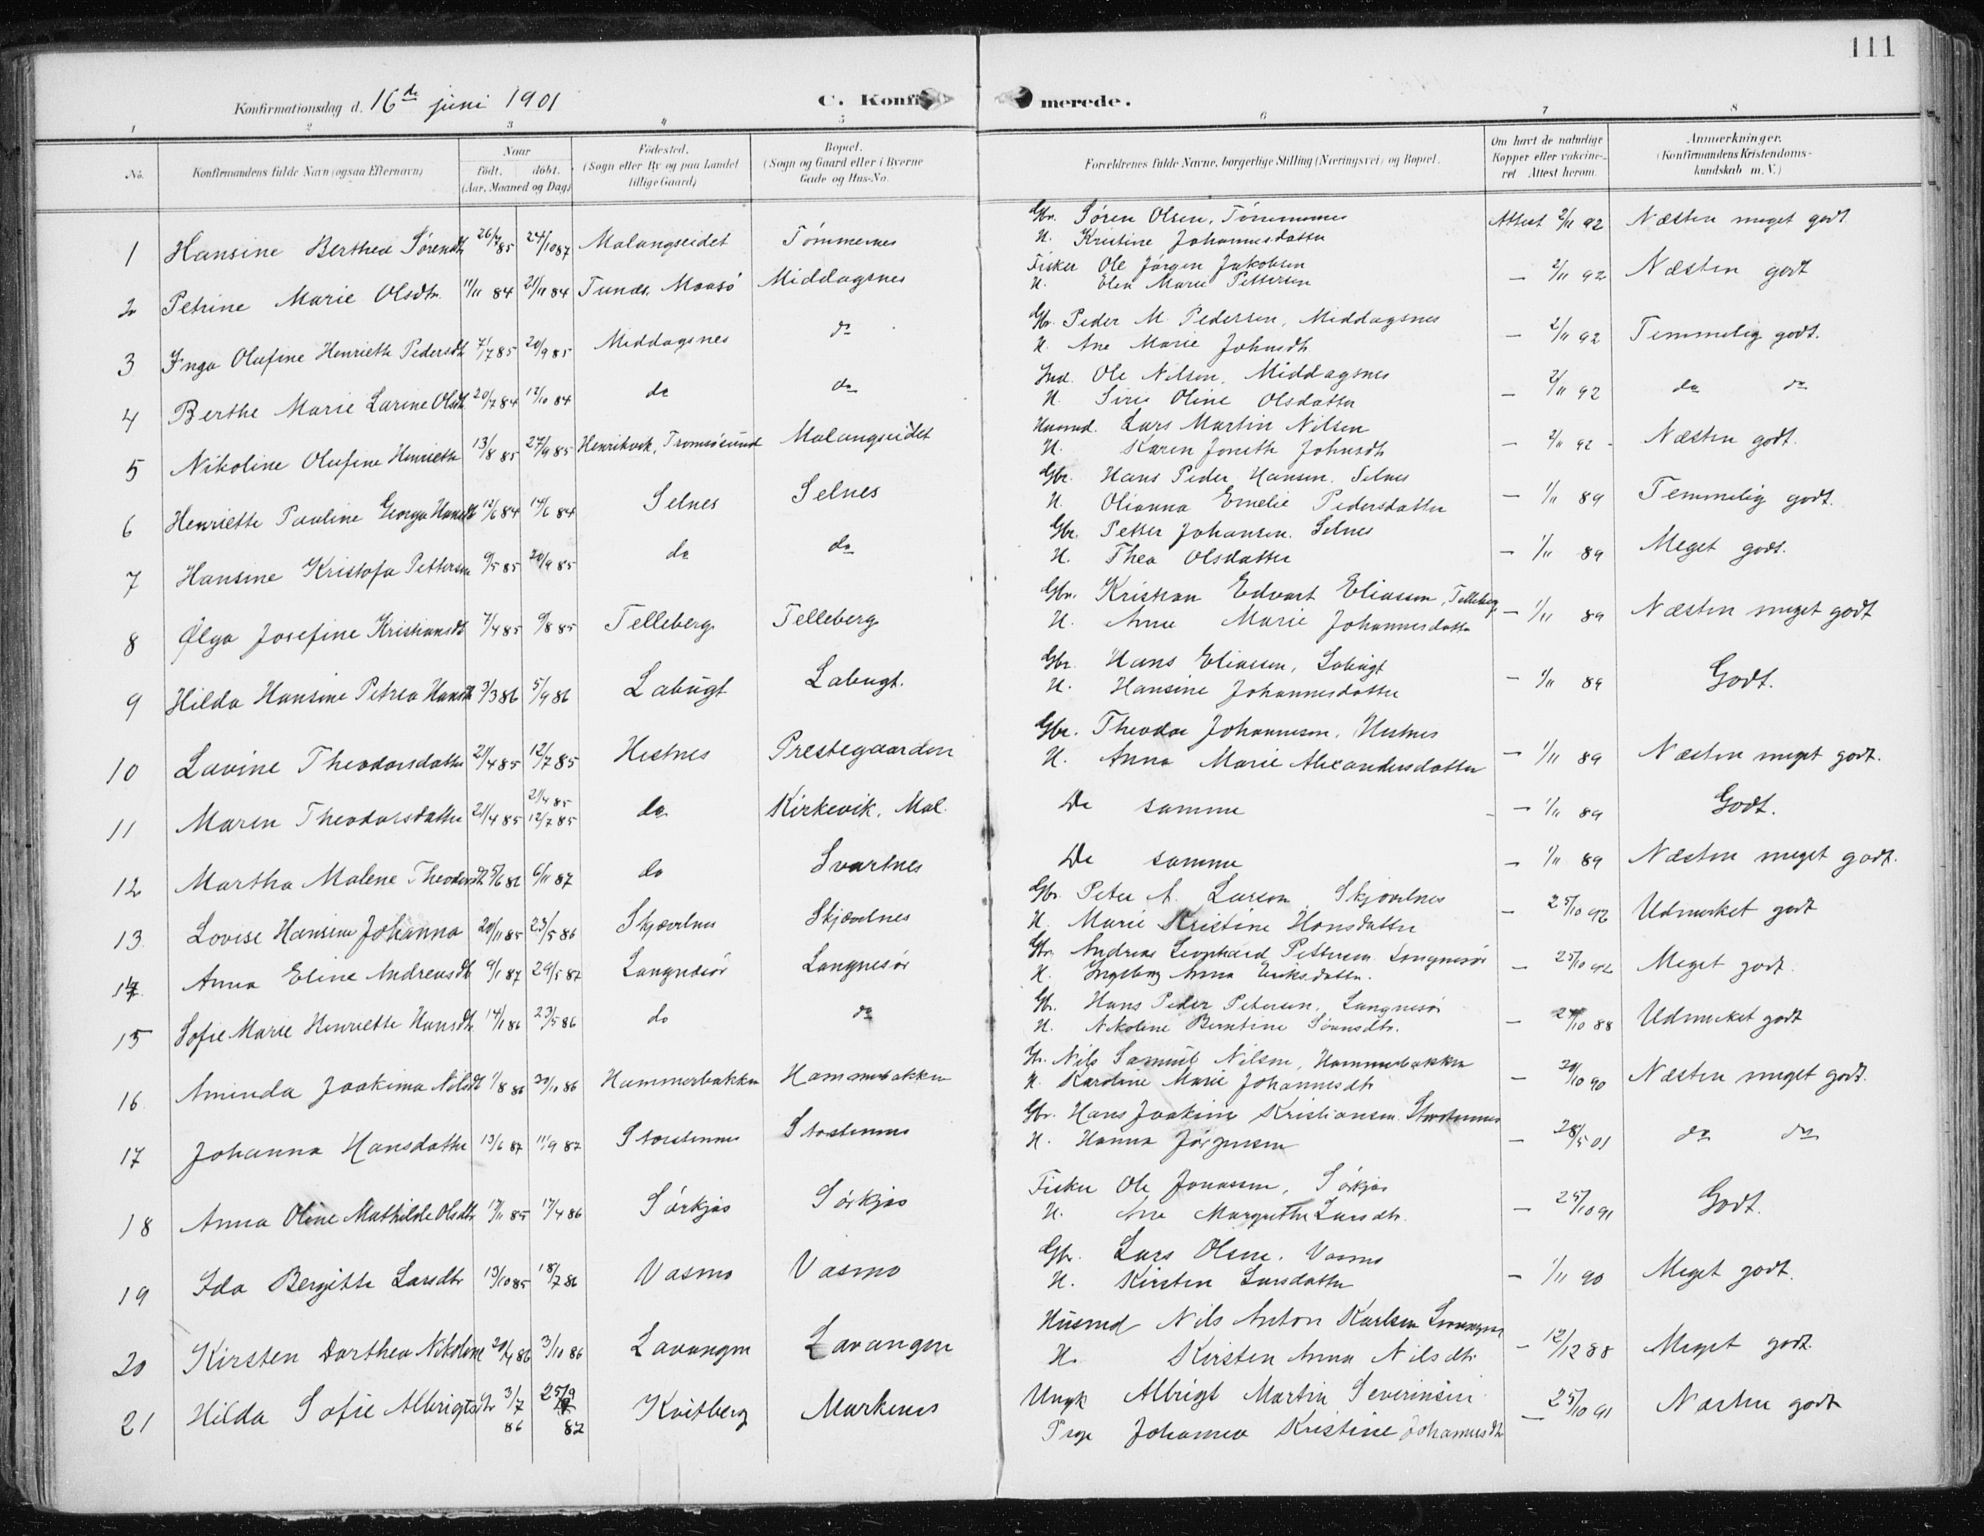 111
Konfirmationsdag d. 16de juni 1901 C. Konfirmerede.
1 2 3 4 5 6 7 8
No. Konfirmandens fulde Navn (ogsaa Efternavn) Naar født. døbt. (Aar, Maaned og Dag) Fødested. (Sogn eller By og paa Landet tillige Gaard) Bopæl. (Sogn og Gaard eller i Byerne Gade og Hus-No. Forældrenes fulde Navne, borgerlige Stilling (Næringsvei) og Bopæl. Om havt de naturlige Kopper eller vakcineret Attest herom. Anmærkninger. (Konfirmandens Kristendomskundskab m. V.)
1 Hansine Berthea Sørensdtr 26/7 85 24/10 87 Malangseidet Tømmernes Gbr. Søren Olsen, Tømmernes Attest 2/11 92 Næsten meget godt
H. Kristine Johannesdatter
2 Petrine Marie Olsdtr. 11/11 84 21/11 84 Tunes, Maasø Middagsnes Fisker Ole Jørgen Jakobsen — 2/11 92 Næsten godt
H. Elen Marie Pettersen
3 Inga Olufine Henriette Pedersdtr 7/7 85 20/9 85 Middagsnes do Gbr. Peder M. Pedersen, Middagsnes — 2/11 92 Temmelig godt.
H. Ane Marie Johnsdtr
4 Berthe Marie Larine Olsdtr 20/7 84 12/10 84 do do Ind. Ole Nilsen, Middagsnes — 2/11 92 do do
H. Siris Oline Olsdatter
5 Nikoline Olufine Henriette 13/8 85 27/9 85 Henrikvik, Tromsøsund Malangseidet Husmd. Lars Martin Nilsen — 2/11 92 - Næsten godt.
H. Karen Joneth Johnsdtr
6 Henriette Pauline Georga Hansdtr 12/6 84 14/6 84 Selnes Selnes Gbr. Hans Peder Hansen, Selnes — 1/11 89 Temmelig godt.
H. Olianna Emelie Pedersdatter
7 Hansine Kristofa Pettersen 9/5 85 20/9 85 do do Gbr. Petter Johansen. Selnes — 1/11 89 Meget godt.
H. Thea Olsdatter
8 Olga Josefine Kristiansdtr 7/4 85 9/8 85 Telleberg Telleberg Gbr. Kristian Edvart Eliassen, Telleberg — 1/11 89 Næsten meget godt
H. Anne Marie Johannesdatter
9 Hilda Hansine Petrea Hansdtr 3/3 86 5/9 86 Labugt Labugt. Gbr. Hans Eliassen, Labugt — 1/11 89 Godt.
H. Hansine Johannesdatter
10 Lavine Theodorsdatter 21/4 85 12/7 85 Hestnes Prestegaarden Gbr. Theodor Johannesen, Hestnes — 1/11 89 Næsten meget godt.
H. Anna Marie Alexandersdatter
11 Maren Theodorsdatter 21/4 85 21/4 85 12/7 85 do Kirkevik, Mal. De samme — 1/11 89 Godt.
12 Martha Malene Theodorsdtr 25/6 86 6/11 87 do Svartnes De samme — 1/11 89 Næsten meget godt.
13 Lovise Hansine Johanna 20/11 85 23/5 86 Skjævelnes Skjævelnes Gbr. Peter A. Larsen Skjævelnes — 25/10 92 Udmerket godt
H. Marie Kristine Hansdatter
14 Anna Eline Andreasdtr 9/1 87 29/5 87 Langnesør Langnesør Gbr. Andreas Leonhard Pettersen Langnesør — 25/10 92 Meget godt.
H. Ingeborg Anna Eriksdatter
15 Sofie Marie Henriette Hansdtr 14/1 86 23/5 86 do do Gbr. Hans Peder Petersen, Langnesør — 24/10 88 Udmerket godt
H. Nikoline Berntine Sørensdtr.
16 Aminda Joakima Nilsdtr 1/8 86 20/10 86 Hammerbakken Hammerbakken Gbr. Nils Samuel Nilsen, Hammerbakken — 20/10 90 Næsten meget godt.
H. Karoline Marie Johannesdtr
17 Johanna Hansdatter 13/6 87 11/9 87 Storstennes Storstennes Gbr. Hans Joakim Kristiansen Storstennes — 28/5 01 do do
H. Hanna Jørgensen
18 Anna Oline Mathilde Olsdtr 17/11 85 17/4 86 Sørkjos Sørkjos Fisker Ole Jonassen, Sørkjos — 25/10 91 Godt.
H. Ane Margrethe Larsdtr.
19 Ida Bergitte Larsdtr 13/10 85 18/7 86 Vasmo Vasmo Gbr. Lars Olsen. Vasmo — 1/11 90 Meget godt.
H. Kirsten Larsdatter
20 Kirsten Dorthea Nikoline 20/4 86 3/10 86 Lavangen Lavangen Husmd Nils Anton Karlsen Lavangen — 12/12 88 Meget godt.
H. Kirsten Anna Nilsdtr
21 Hilda Sofie Albrigtsdtr 3/7 86 25/9 87 Kvitberg Markenes Ungk Albrigt Martin Severinsen — 25/10 91 Næsten godt
Pige Johanna Kristine Johannesdtr